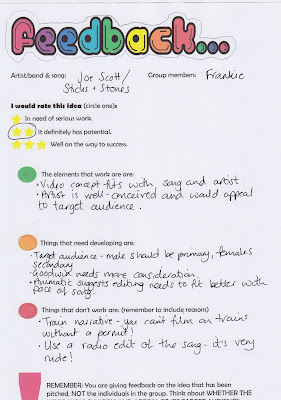 Feedback...
Artist/band & song: Joe Scott/ Group member: Frankie
Sticks + Stones
I would rate this idea (circle one):
In need of serious work.
It definitely has potential.
Well on the way to success.
The elements that work are are:
• Video concept fits with song and artist.
• Artist is well-conceived and would appeal
to target audience.
Things that need developing are:
• Target audience - male should be primary, females
secondary
• Goodwin needs more consideration.
• Animatic suggests editing needs to fit better with
pace of song.
Things that don't work are: (remember to include reasons)
• Train narrative - you can't film on trains
without a permit!
• Use a radio edit of the song - it's very
rude!
REMEMBER: You are giving feedback on the idea that has been
pitched, NOT the individuals in the group. Think about WHETHER THE